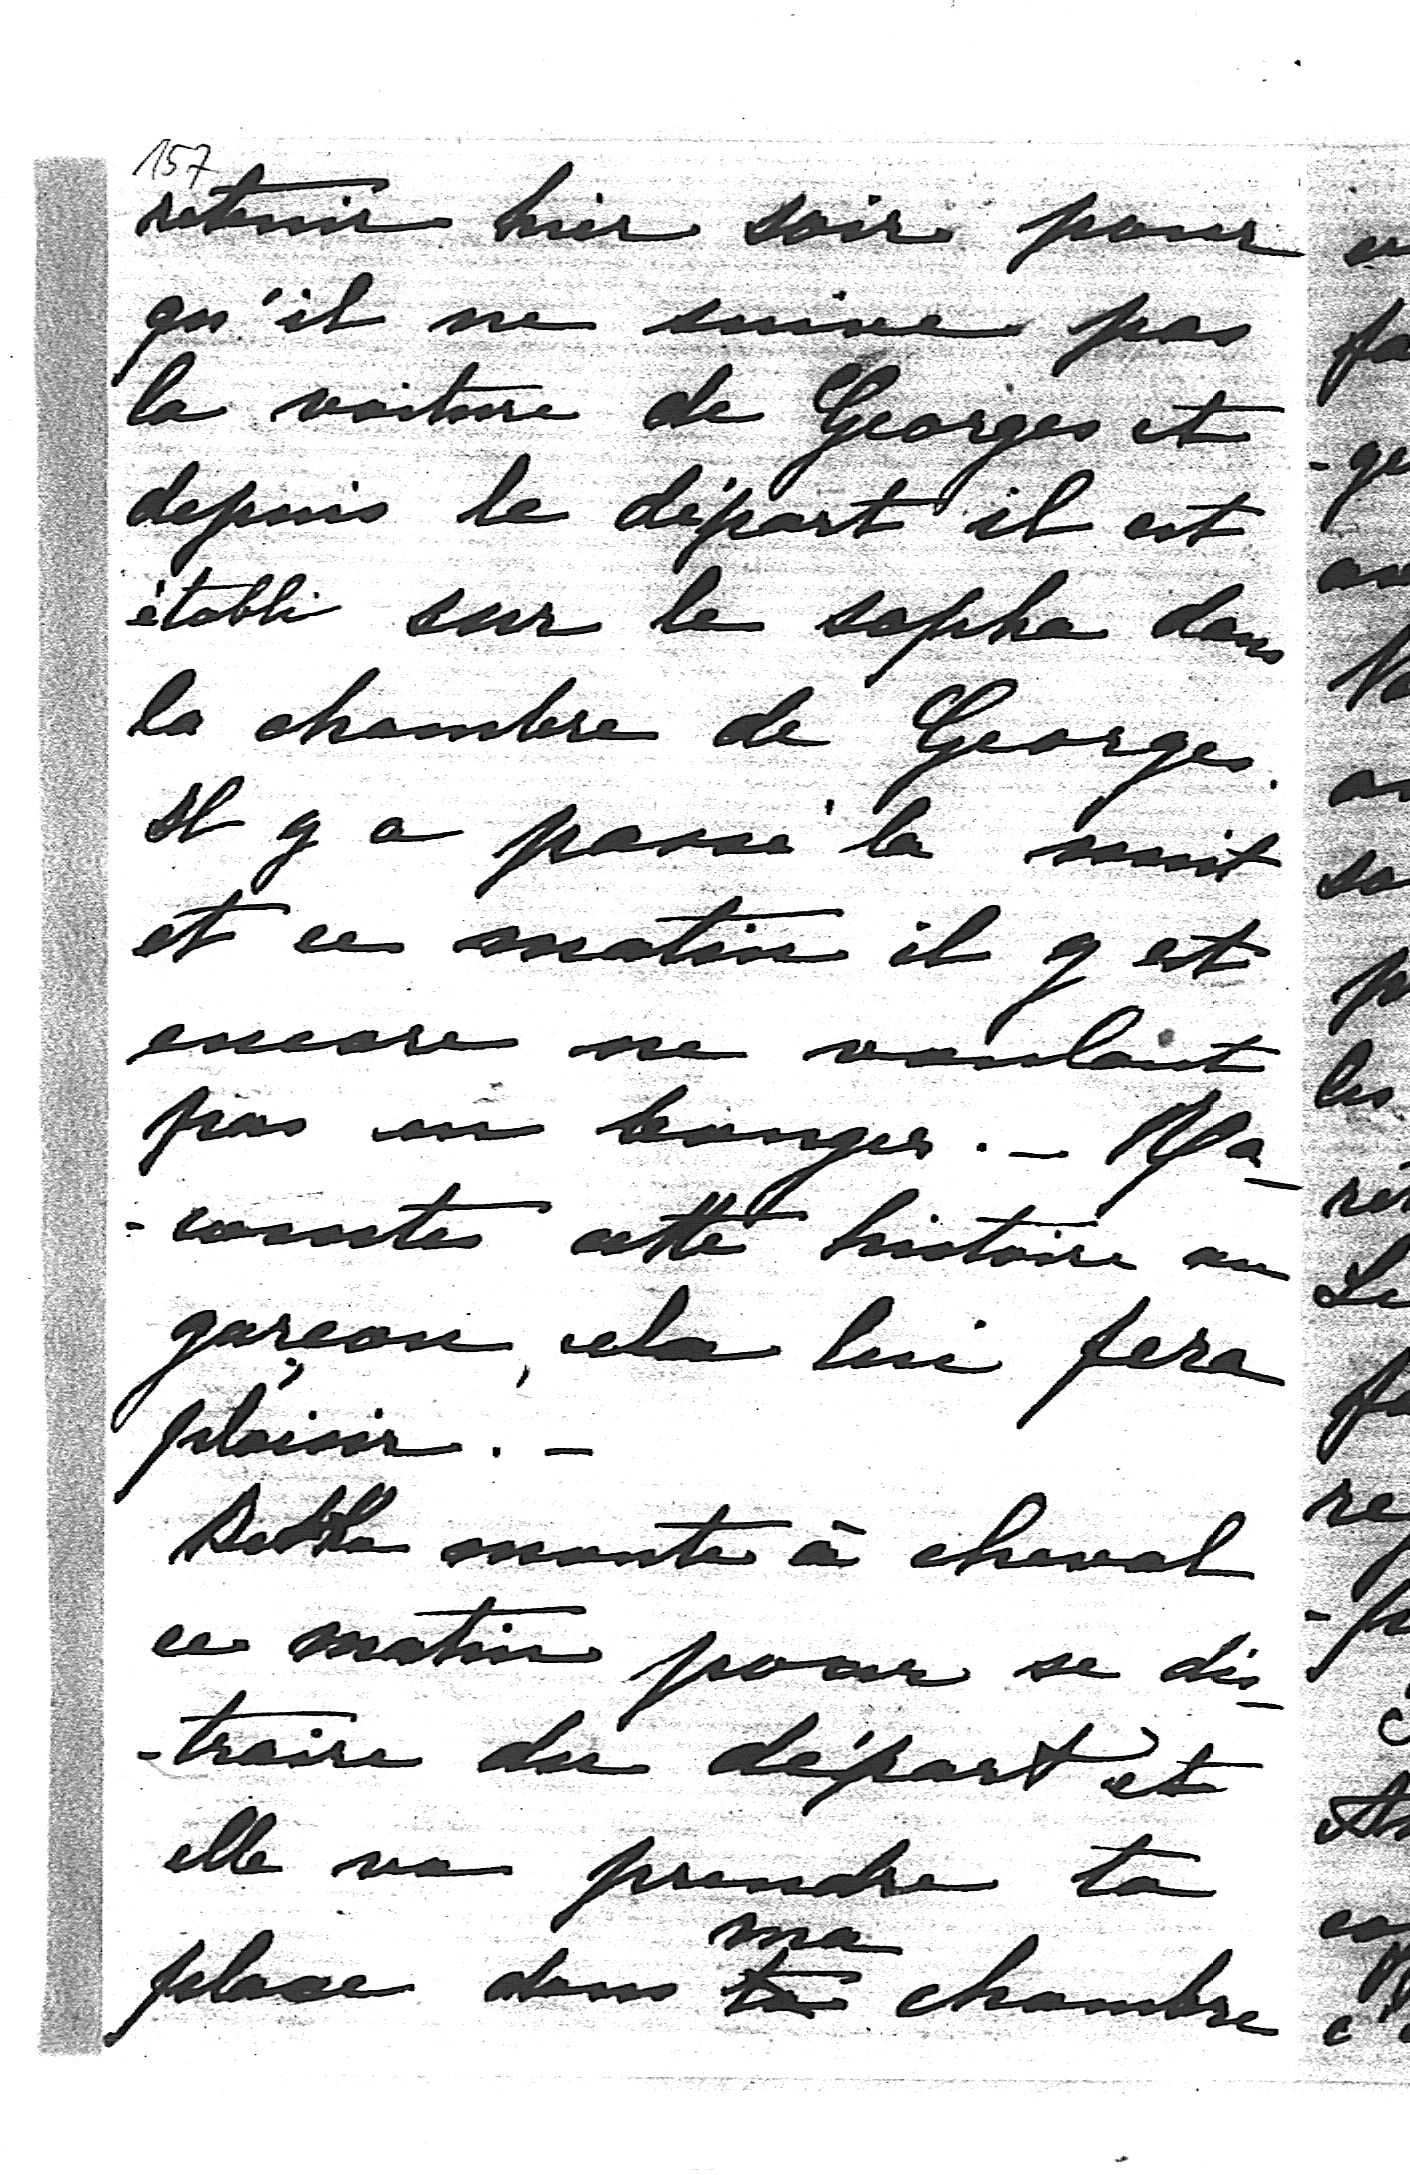 157
retenir hier soir pour
qu'il ne suive pas
la voiture de Georges et
depuis le départ il est
établi sur le sopha dans
la chambre de Georges.
Il y a passé la nuit
et ce matin il y est
encore ne voulant
pas en bouger. - Ra-
-conte cette histoire au
garçon, cela lui fera
plaisir. -
monte à cheval
ce matin pour se dis-
-traire du départ et
elle va prendre ta
ma
place dans ta chambre